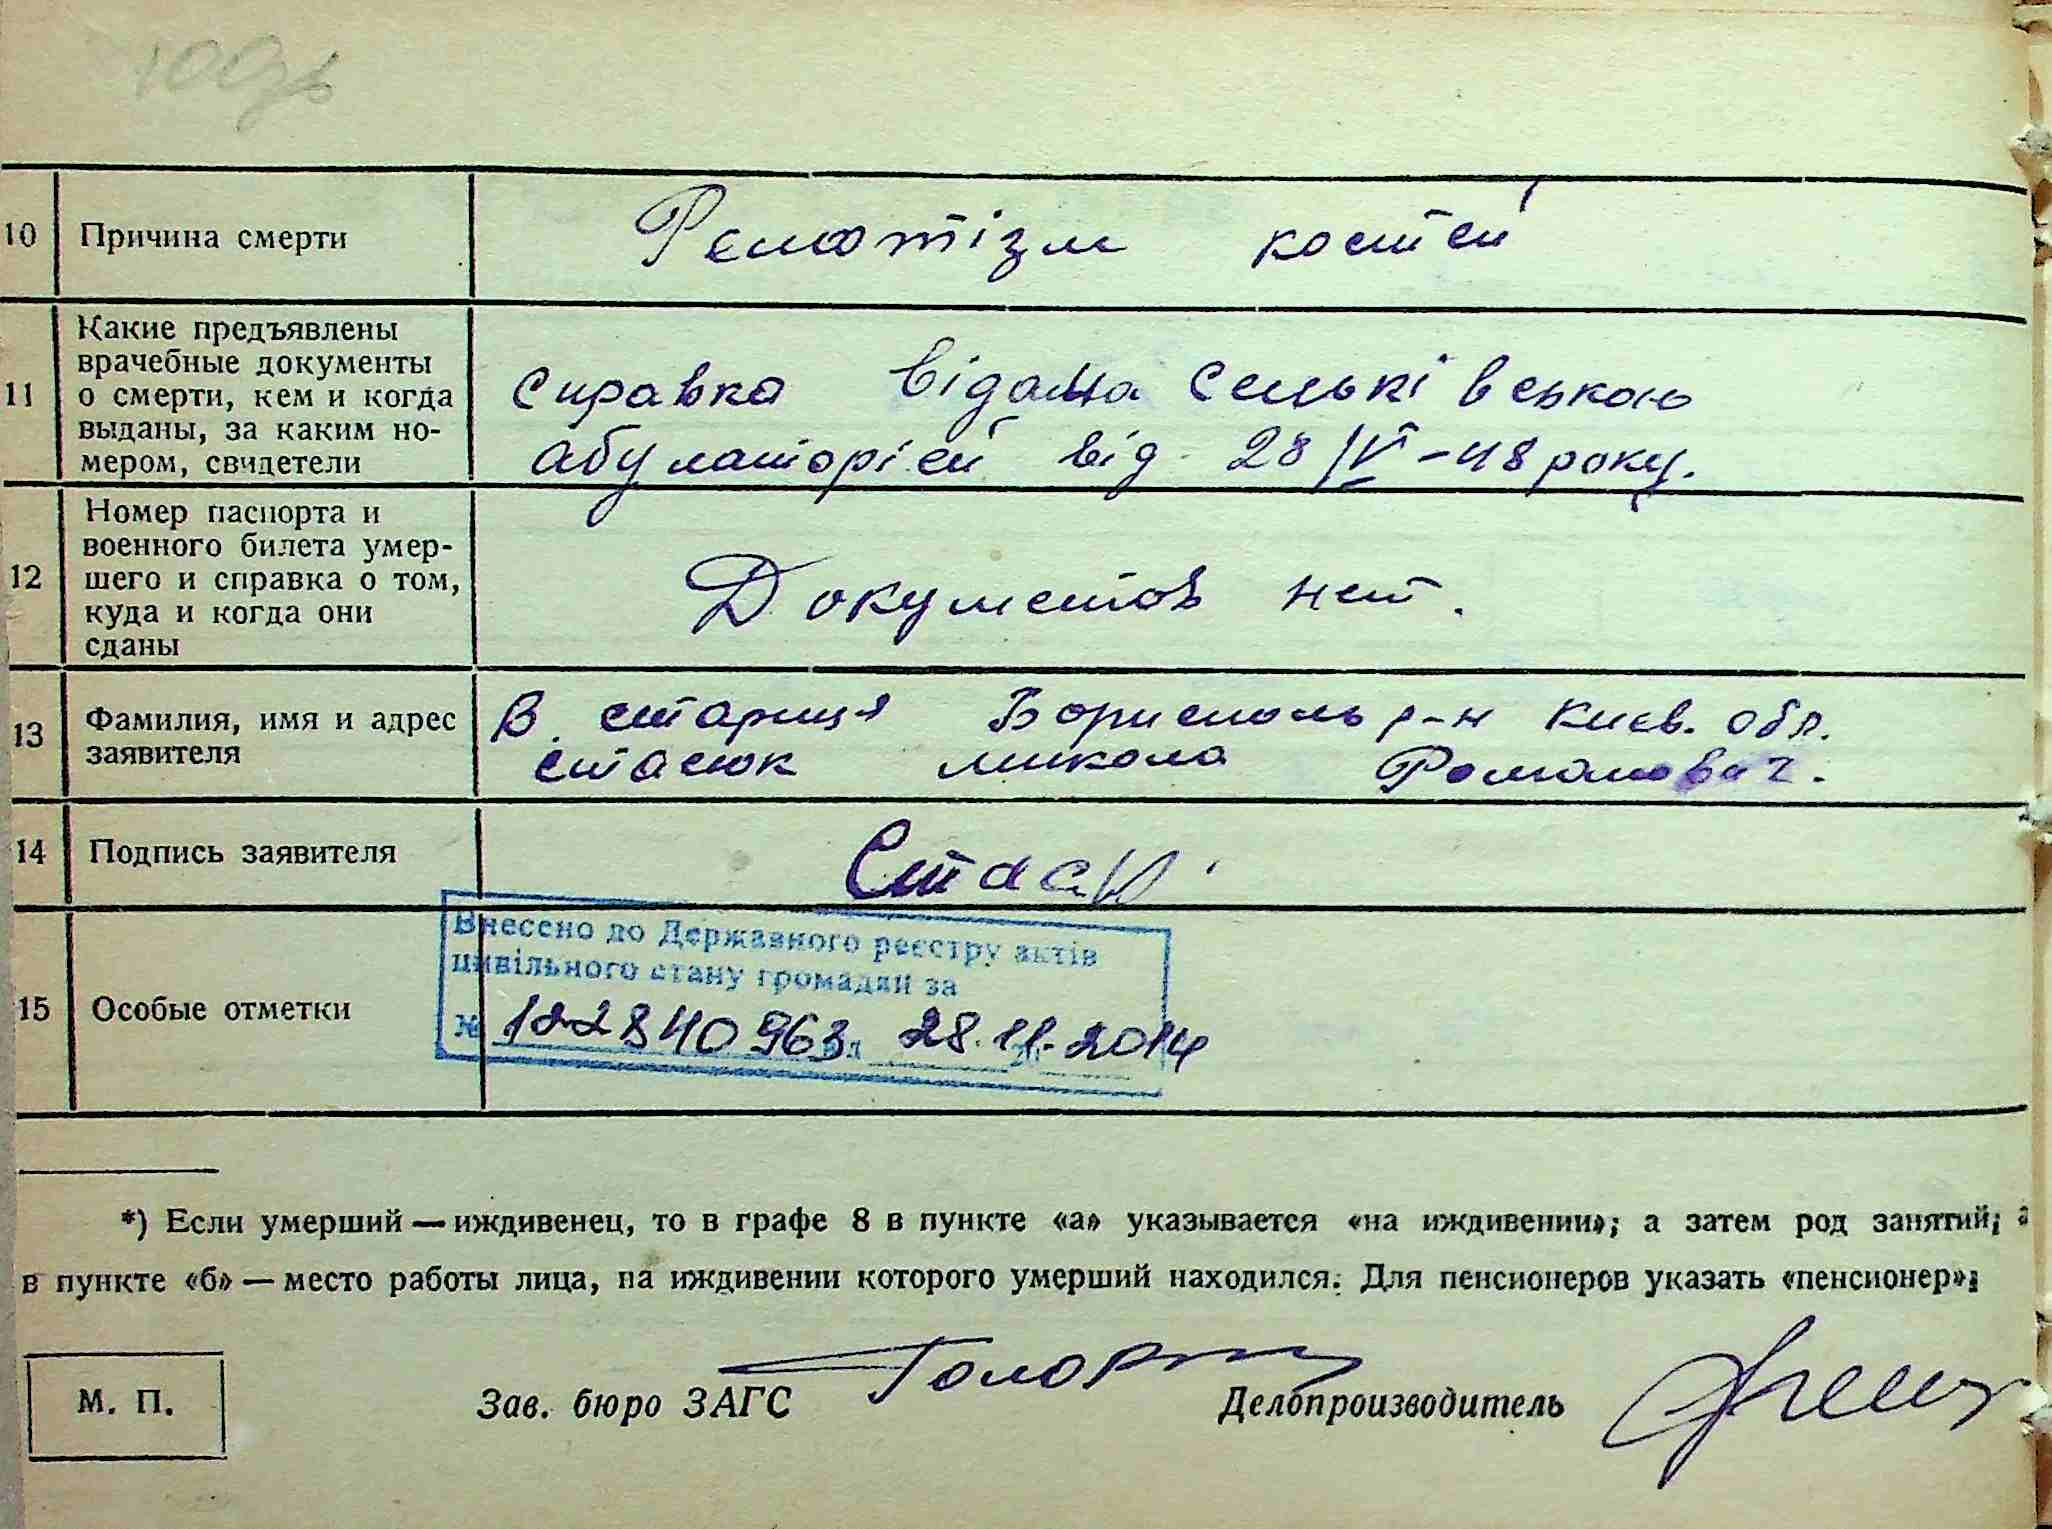 10
Причина смерти
Рематізм костей
11
Какие предъявлены
врачебные документы
о смерти, кем и когда
выданы, за каким но-
мером, свидетели
Справка відана Сеньківською
абулаторієй від 28/IV-48 року.
12
Номер паспорта и
военного билета умер-
шего и справка о том,
куда и когда они
сданы
Документов нет.
13
Фамилия, имя и адрес
заявителя
В. Стариця Борисполь р-н Києв. обл.
Стасюк Микола Романович.
14
Подпись заявителя
Стасю
15
Особые отметки
Внесено до Державного реєстру актів
цивільного стану громадян за
№ 122840963 28.11.2014
*) Если умерший — иждивенец, то в графе 8 в пункте «а» указывается «на иждивении»; а затем род занятий; а
в пункте «б» — место работы лица, на иждивении которого умерший находился. Для пенсионеров указать «пенсионер»;
М. П.
Зав. бюро ЗАГС
Делопроизводитель